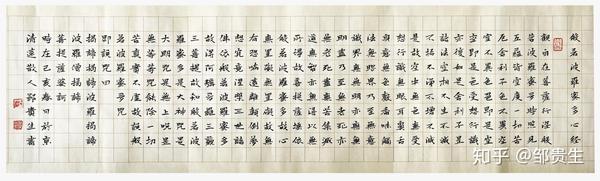 般若波羅密多心經
觀自在菩薩行深般
若波羅密多時照見
五蘊皆空度一切苦
厄舍利子色不異空
空不異色色即是空
空即是色受想行識
亦復如是舍利子是
諸法空相不生不滅
不垢不淨不增不減
是故空中無色無受
想行識無眼耳鼻舌
身意無色聲香味觸
法無眼界乃至無意
識界無無明亦無無
明盡乃至無老死亦
無老死盡無苦集滅
道無智亦無得以無
所得故菩提薩埵依
般若波羅密多故心
無罣礙無罣礙故無
有恐怖遠離顛倒夢
想究竟涅槃三世諸
佛依般若波羅密多
故得阿耨多羅三藐
三菩提故知般若波
羅密多是大神咒是
大明咒是無上咒是
無等等咒能除一切
苦真實不虛故說般
若波羅密多咒
即說咒曰
揭諦揭諦波羅揭諦
波羅僧揭諦
菩提薩婆訶
時在己亥春日於京
清蓮散人鄒貴生書
知乎 @邹贵生